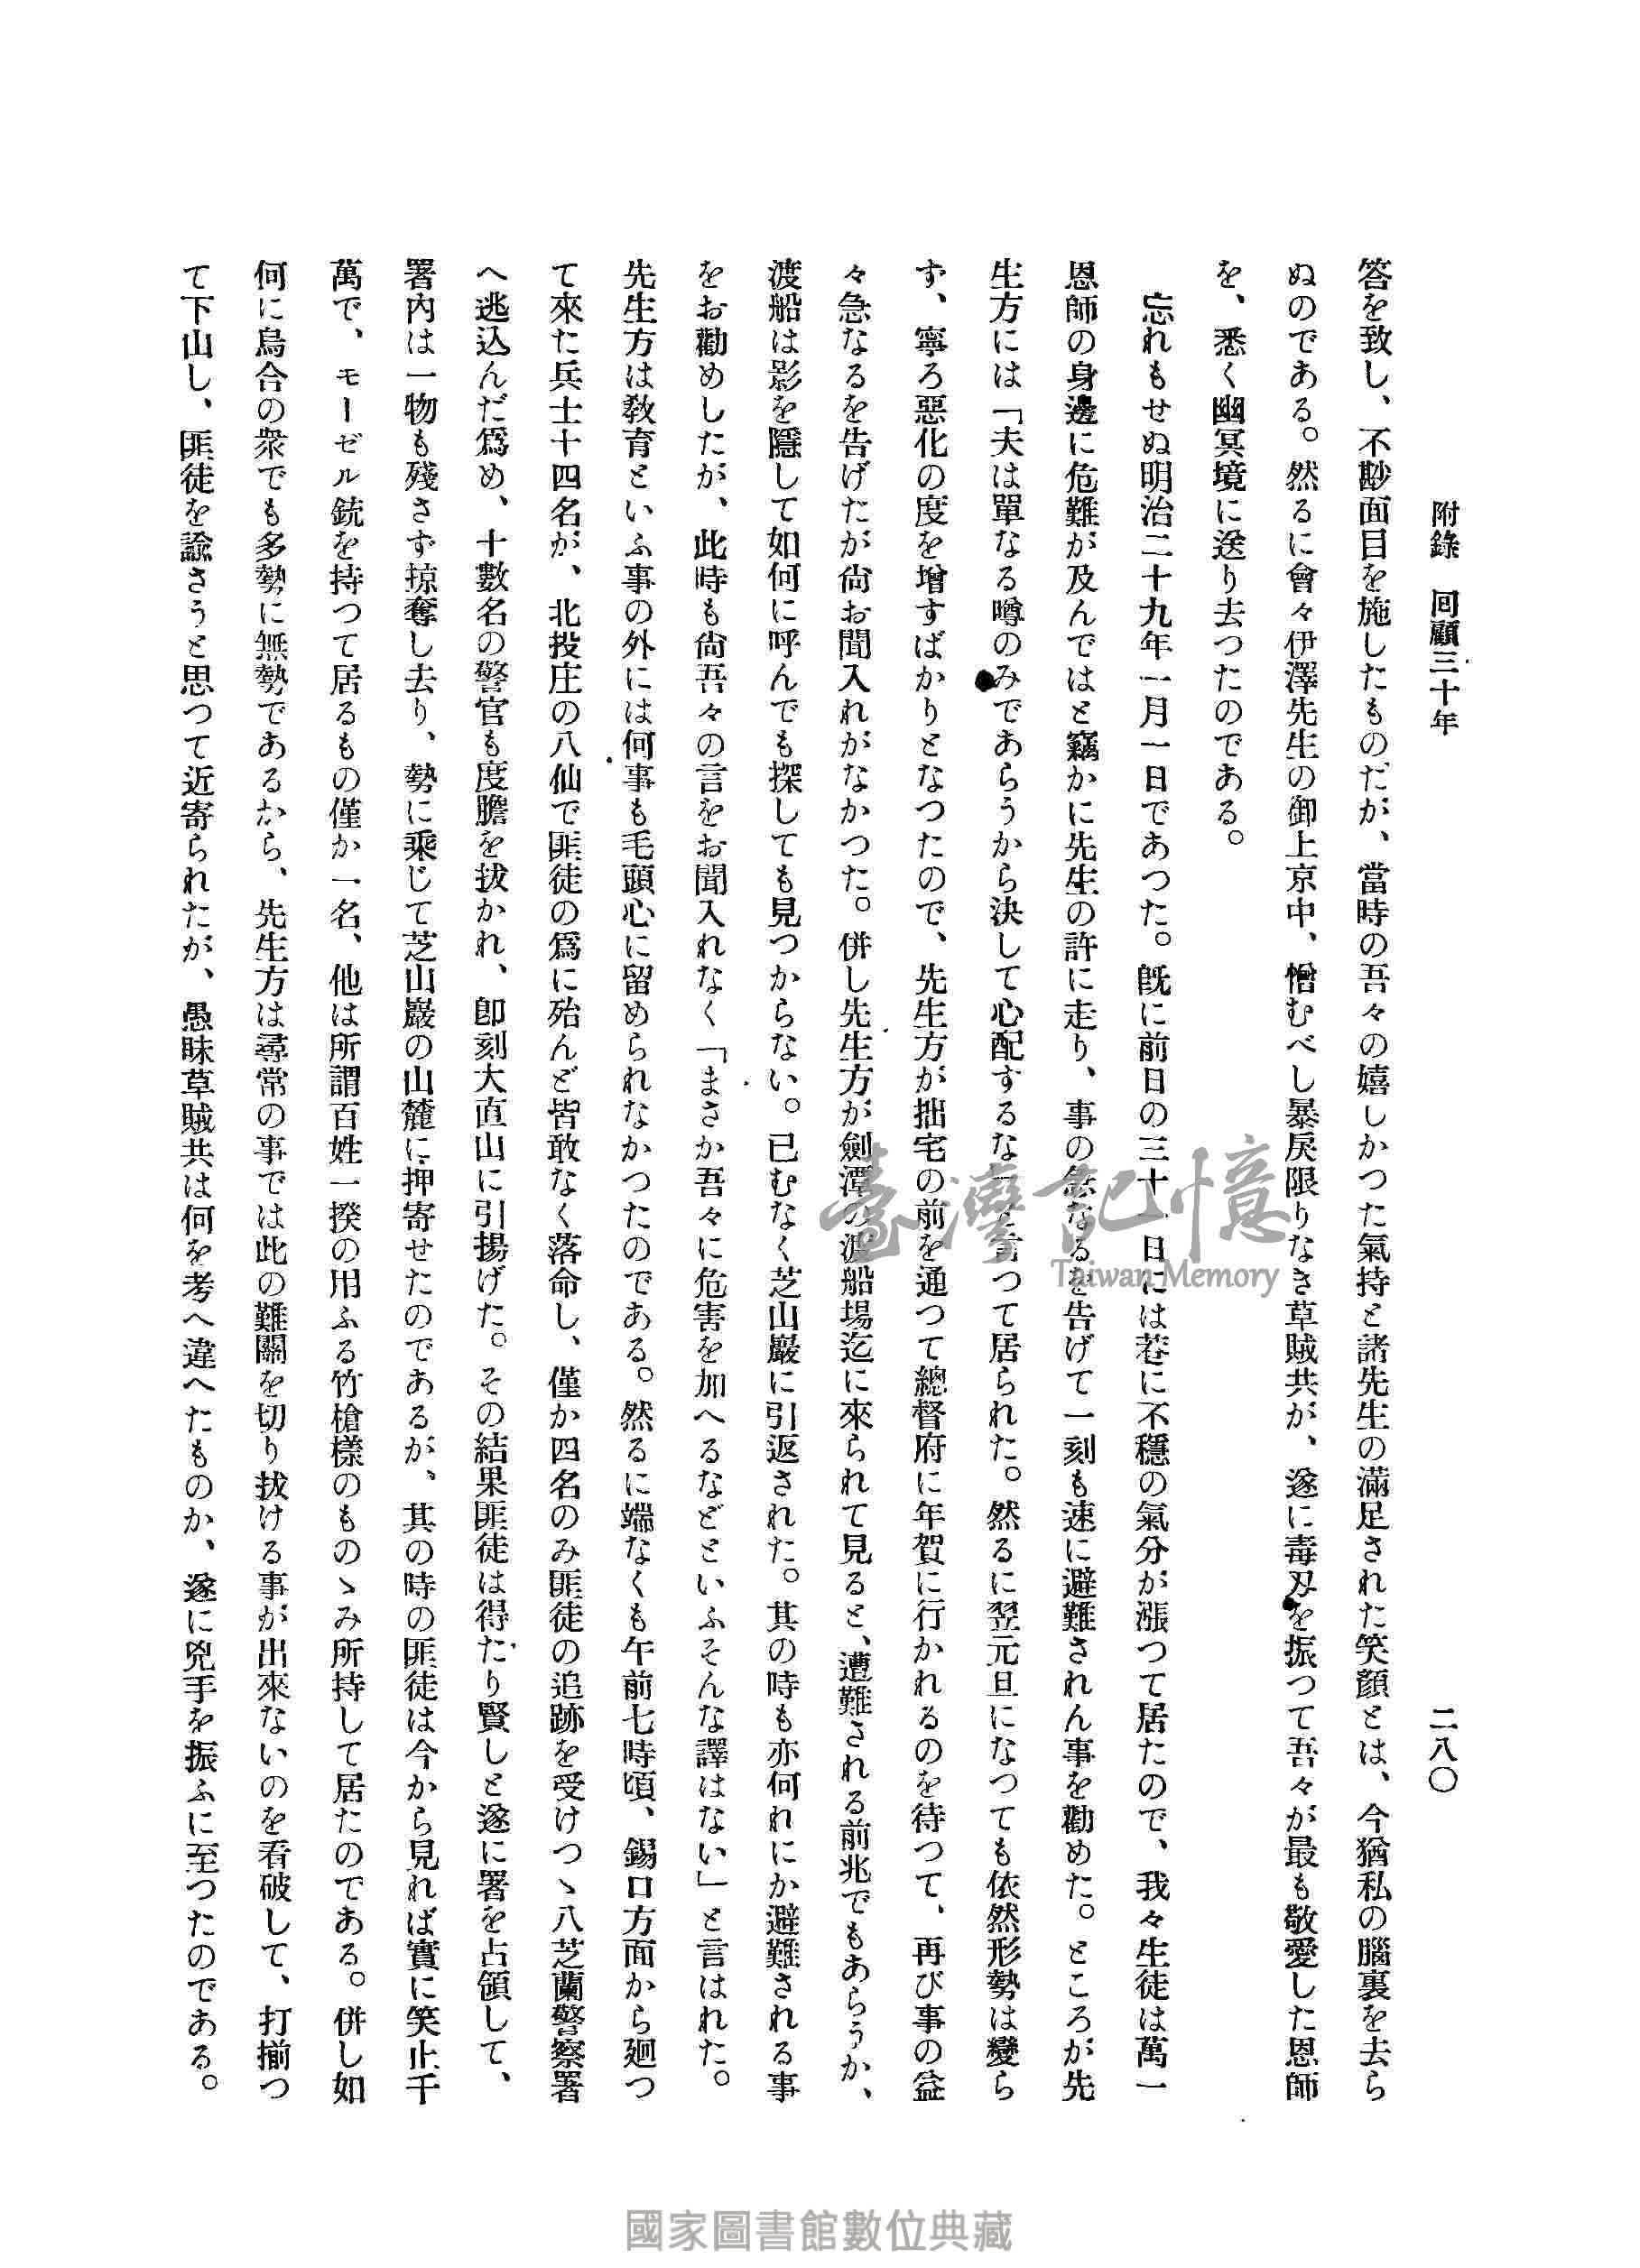 附錄　回顧三十年
二八〇
答を致し、不尠面目を施したものだが、當時の吾々の嬉しかつた氣持と諸先生の滿足された笑顏とは、今猶私の腦裏を去ら
ぬのである。然るに會々伊澤先生の御上京中、憎むべし暴戾限りなき草賊共が、遂に毒刄を振つて吾々が最も敬愛した恩師
を、悉く幽冥境に送り去つたのである。
忘れもせぬ明治二十九年一月一日であつた。旣に前日の三十一日には莟に不穩の氣分が漲つて居たので、我々生徒は萬一
恩師の身邊に危難が及んではと竊かに先生の許に走り、事の急なるを告げて一刻も速に避難されん事を勸めた。ところが先
生方には「夫は單なる噂のみであらうから決して心配するな」と言つて居られた。然るに翌元旦になつても依然形勢は變ら
ず、寧ろ惡化の度を增すばかりとなつたので、先生方が拙宅の前を通つて總督府に年賀に行かれるのを待つて、再び事の益
々急なるを告げたが尙お聞入れがなかつた。併し先生方が劍潭の渡船場迄に來られて見ると、遭難される前兆でもあらうか、
渡船は影を隱して如何に呼んでも探しても見つからない。已むなく芝山巖に引返された。其の時も亦何れにか避難される事
をお勸めしたが、此時も尙吾々の言をお聞入れなく「まさか吾々に危害を加へるなどといふそんな譯はない」と言はれた。
先生方は敎育といふ事の外には何事も毛頭心に留められなかつたのである。然るに端なくも午前七時頃、錫口方面から廻つ
て來た兵士十四名が、北投庄の八仙で匪徒の爲に殆んど皆敢なく落命し、僅か四名のみ匪徒の追跡を受けつゝ八芝蘭警察署
へ逃込んだ爲め、十數名の警官も度膽を拔かれ、卽刻大直山に引揚げた。その結果匪徒は得たり賢しと遂に署を占領して、
署內は一物も殘さず掠奪し去り、勢に乘じて芝山巖の山麓に押寄せたのであるが、其の時の匪徒は今から見れば實に笑止千
萬で、モーゼル銃を持つて居るもの僅か一名、他は所謂百姓一揆の用ふる竹槍樣のものゝみ所持して居たのである。併し如
何に烏合の衆でも多勢に無勢であるから、先生方は尋常の事では此の難關を切り拔ける事が出來ないのを看破して、打揃つ
て下山し、匪徒を諭さうと思つて近寄られたが、愚昧草賊共は何を考へ違へたものか、遂に兇手を振ふに至つたのである。
臺灣記憶
Taiwan Memory
國家圖書館數位典藏